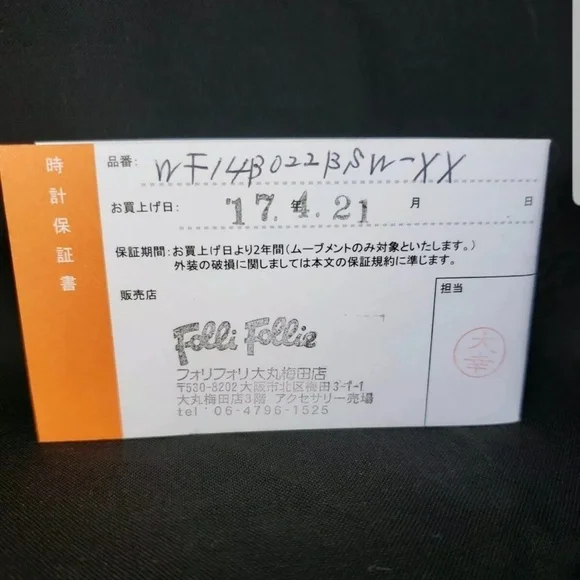 時計保証書
品番: WF14B022BSW-XX
お買上げ日: '17.年4.21 月 日
保証期間:お買上げ日より2年間(ムーブメントのみ対象といたします。)
外装の破損に関しましては本文の保証規約に準じます。
販売店
担当
Folli Follie
フォリフォリ大丸梅田店
〒530-8202大阪市北区梅田3-1-1
大丸梅田店3階 アクセサリー売場
tel 06-4796-1525